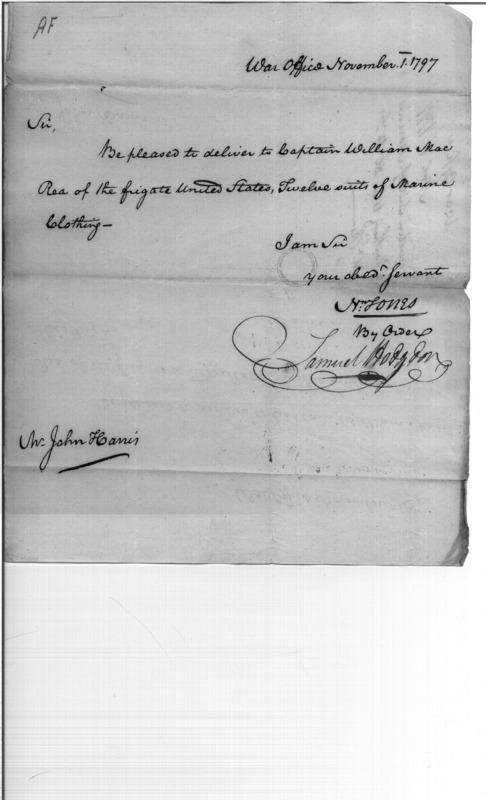 AF
War Office November 1. 1797
Sir,
Be pleased to deliver to Captain William Mac
Rea of the frigate United States, Twelve suits of Marine
Clothing—
I am Sir
your obedt. Servant
Wm Jones
By Order
Samuel Hodgdon
Mr. John Harris